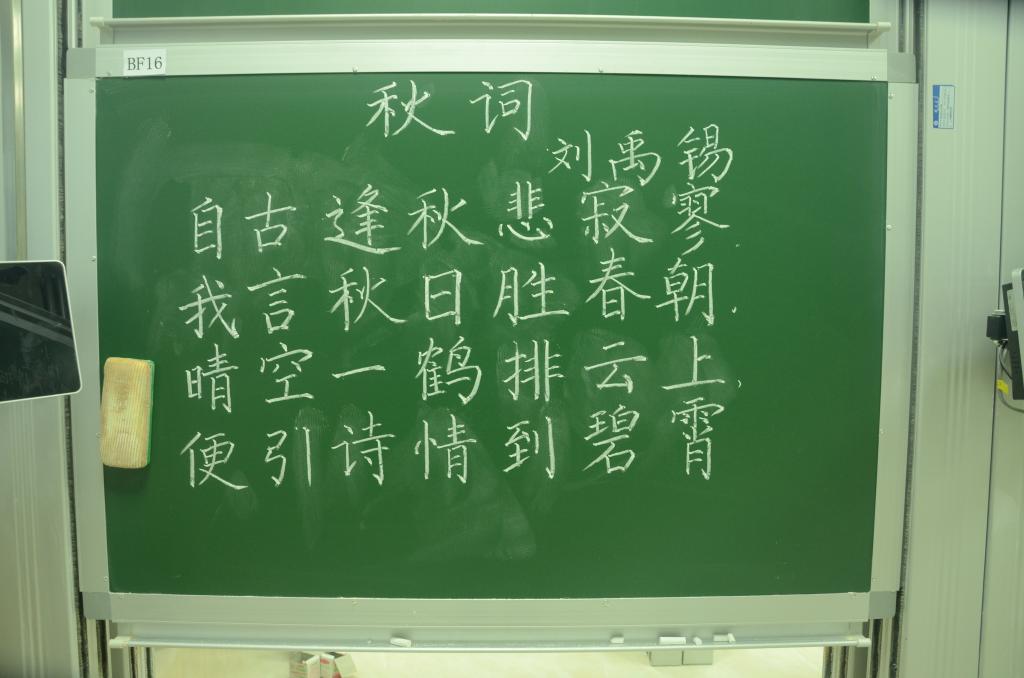 BF16
秋词
刘禹锡
自古逢秋悲寂寥.
我言秋日胜春朝.
晴空一鹤排云上,
便引诗情到碧霄